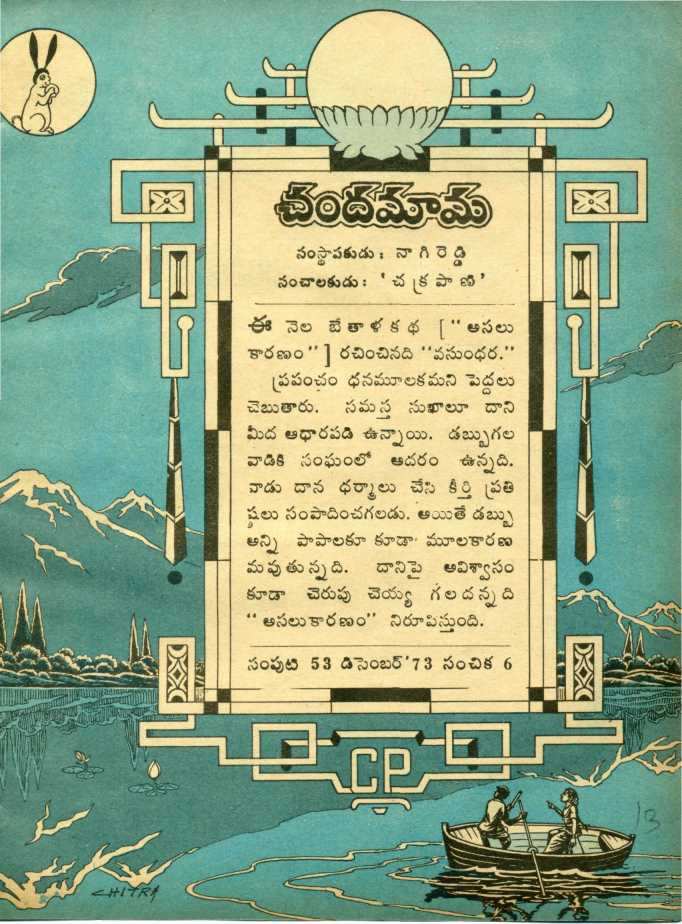 చందమామ
సంస్థాపకుడు : నా గి రె డ్డి
సంచాలకుడు : ' చ క్ర పా ణి '
ఈ నెల బేతాళ కథ [ " అసలు
కారణం " ] రచించినది "వసుంధర."
ప్రపంచం ధనమూలకమని పెద్దలు
చెబుతారు. సమస్త సుఖాలూ దాని
మీద ఆధారపడి ఉన్నాయి. డబ్బుగల
వాడికి సంఘంలో ఆదరం ఉన్నది.
వాడు దాన ధర్మాలు చేసి కీర్తి ప్రతి
ష్ఠలు సంపాదించగలడు. అయితే డబ్బు
అన్ని పాపాలకూ కూడా మూలకారణ
మవుతున్నది. దానిపై అవిశ్వాసం
కూడా చెరుపు చెయ్య గలదన్నది
" అసలుకారణం" నిరూపిస్తుంది.
సంపుటి 53 డిసెంబర్ '73 సంచిక 6
CP
13
CHITRA